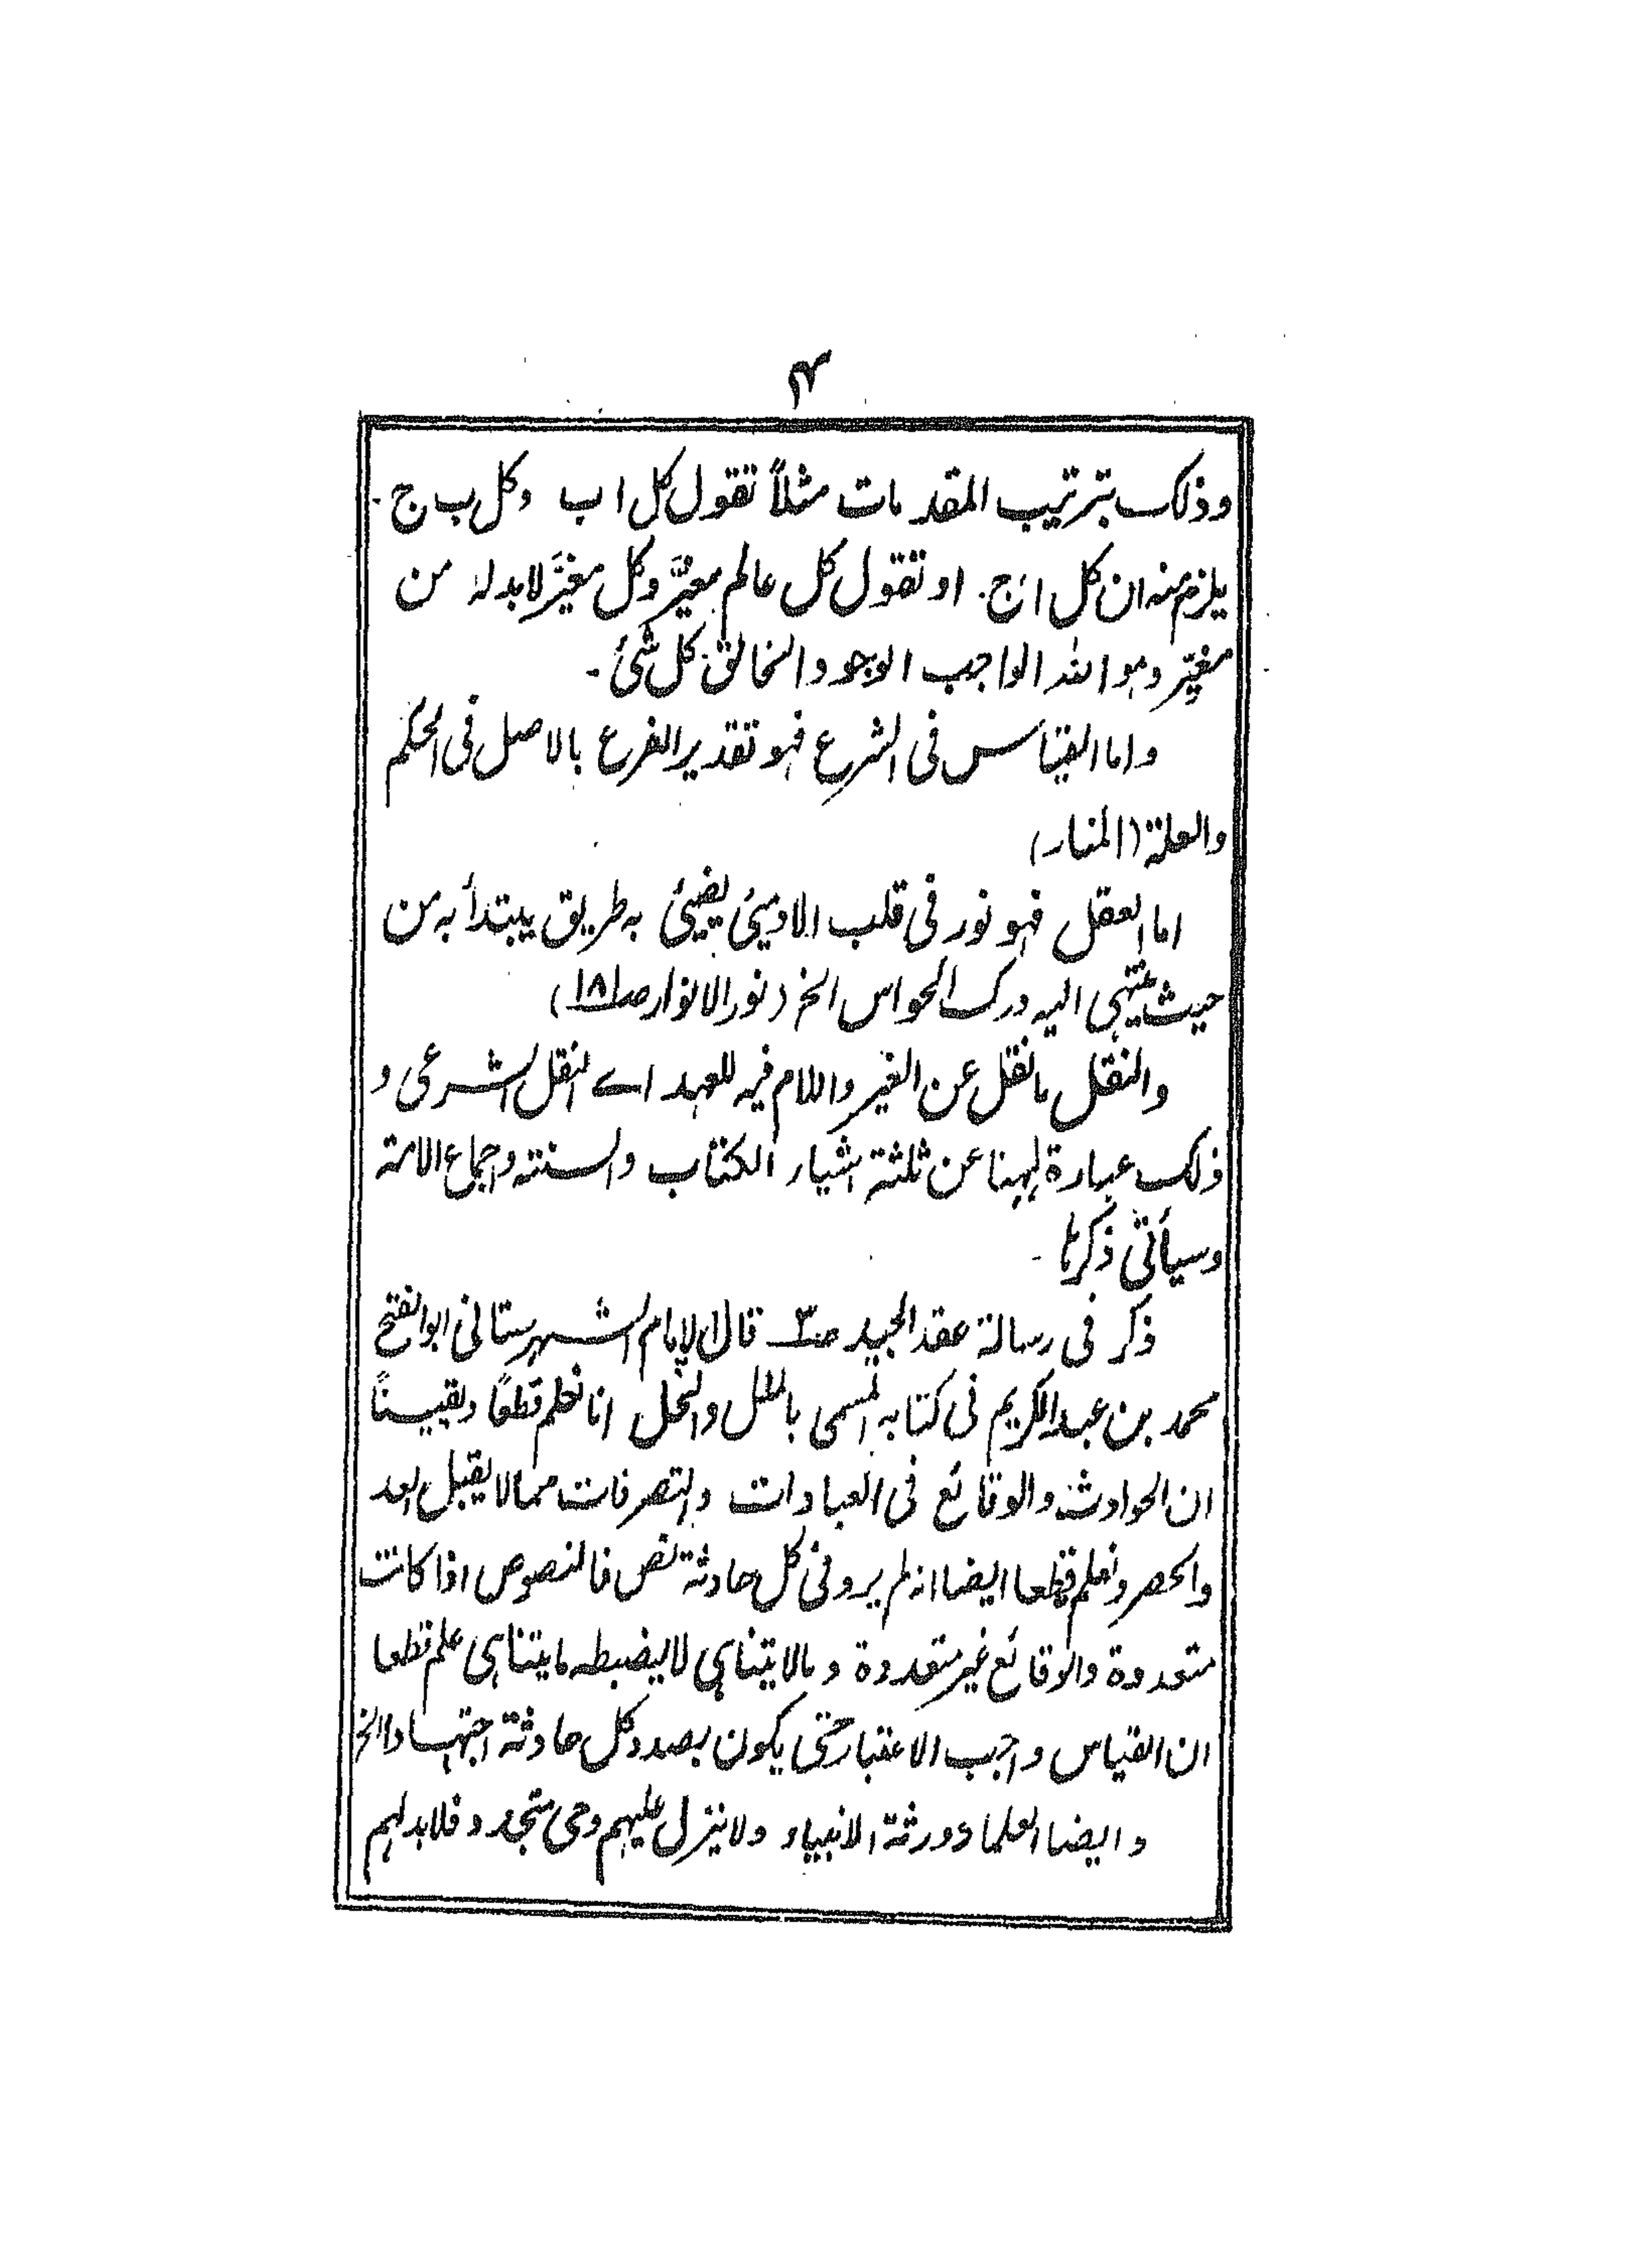 ۴
وذلك بترتيب المقدمات مثلاً تقول كل ا ب وكل ب ج -
يلزم منه ان كل ا ج. او تقول كل عالم مغيَّر وكل مغيَّر لا بد له من
مغيِّر وهو الله الواجب الوجود والخالق كل شئ -
واما القياس فى الشرع فهو تقدير الفرع بالاصل فى الحكم
والعلة (المنار)
اما العقل فهو نور فى قلب الادمى يضيئ به طريق يبتدأ به من
حيث ينتهى اليه درك الحواس الخ (نور الانوار صـ۱۸۱)
والنقل ما نقل عن الغير واللام فيه للعهد اے النقل الشرعى و
ذلك عبارة ههنا عن ثلثة اشياء الكتاب والسنة واجماع الامة
وسيأتى ذكرها -
ذكر فى رسالة عقد الجيد صـ۳ قال الامام الشهرستانى ابو الفتح
محمد بن عبد الكريم فى كتابه المسمى بالملل والنحل انا نعلم قطعًا ويقينًا
ان الحوادث والوقائع فى العبادات والتصرفات مما لا يقبل العد
والحصر ونعلم قطعا ايضا انه لم يرو فى كل حادثة نص فالنصوص اذا كانت
متعدودة والوقائع غير متعدودة وما لا يتناهى لا يضبطه ما يتناهى علم قطعا
ان القياس واجب الاعتبار حتى يكون بصدد كل حادثة اجتهاد الخ
وايضا العلماء ورثة الانبياء ولا ينزل عليهم وحى متجدد فلا بد لهم